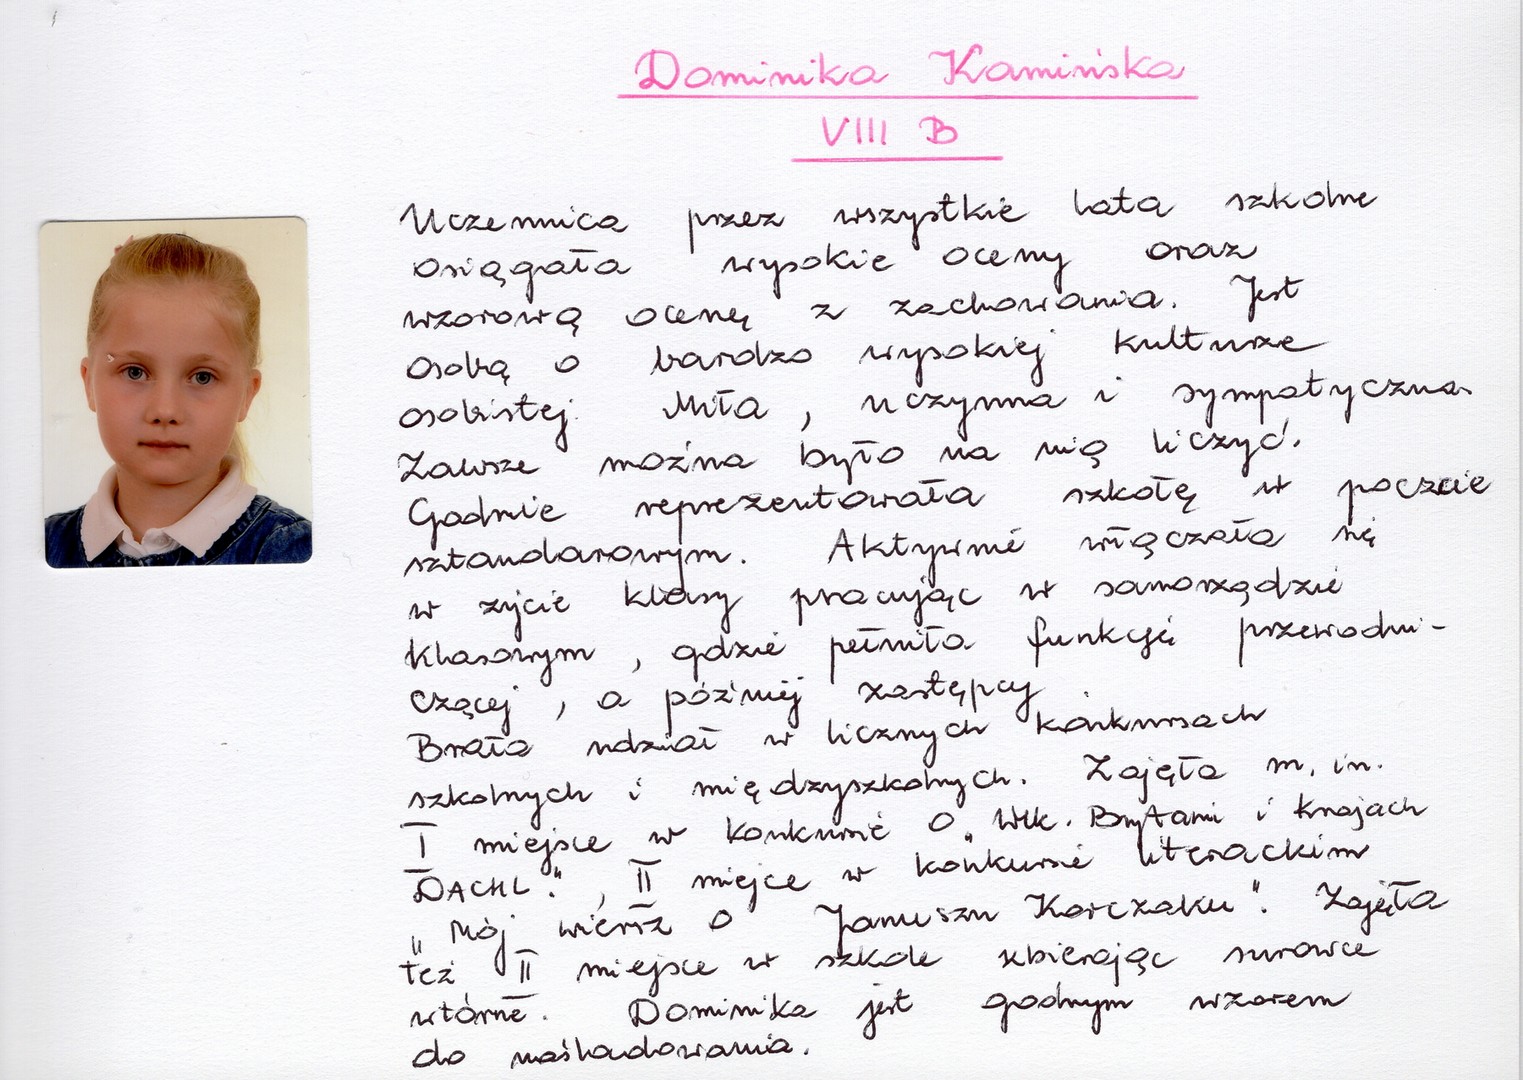 Dominika Kamińska
VIII B
Uczennica przez wszystkie lata szkolne
osiągała wysokie oceny oraz
wzorową ocenę z zachowania. Jest
osobą o bardzo wysokiej kulturze
osobistej. Miła, uczynna i sympatyczna.
Zawsze można było na nią liczyć.
Godnie reprezentowała szkołę w poczcie
sztandarowym. Aktywnie włączała się
w życie klasy pracując w samorządzie
klasowym, gdzie pełniła funkcję przewodni-
czącej, a później zastępcy.
Brała udział w licznych konkursach
szkolnych i międzyszkolnych. Zajęła m.in.
I miejsce w konkursie „O Wlk. Brytanii i krajach
DACHL", II miejce w konkursie literackim
„Mój wiersz o Januszu Korczaku". Zajęła
też II miejsce w szkole zbierając surowce
wtórne. Dominika jest godnym wzorem
do naśladowania.